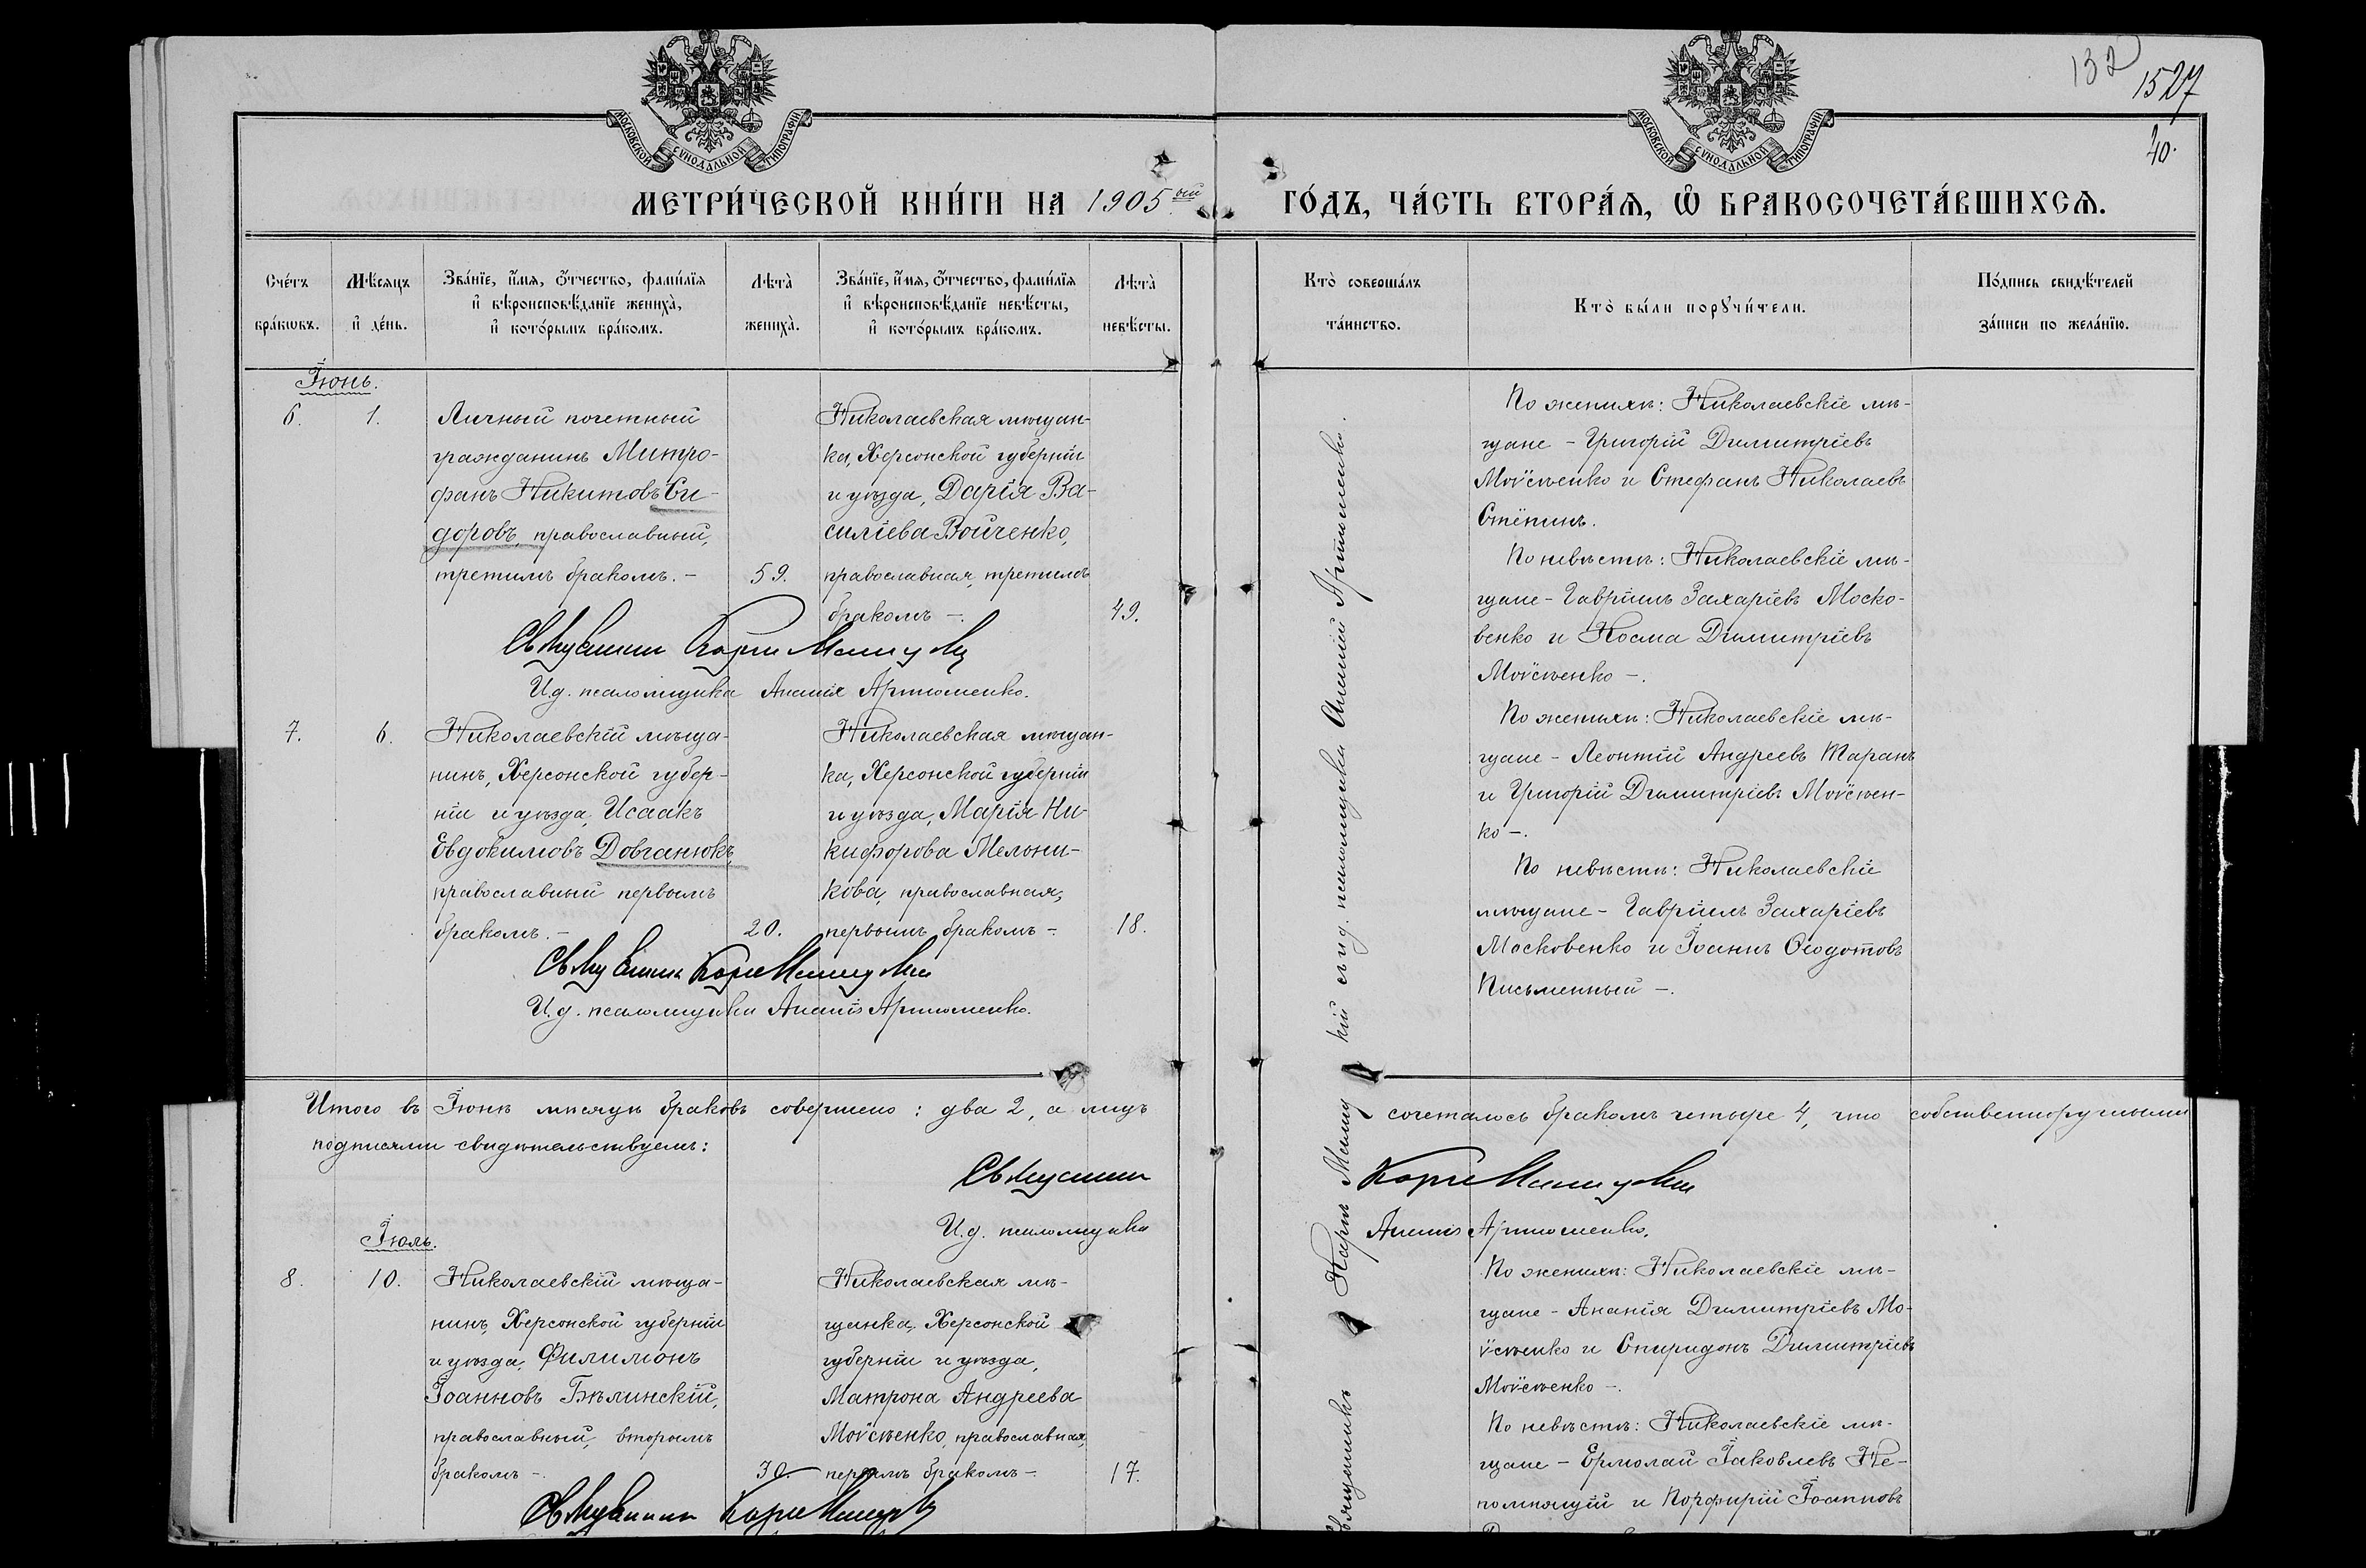 132
1527
40.
МОСКОВСКОЙ СѴНОДАЛЬНОЙ ТИПОГРАФІИ
МОСКОВСКОЙ СѴНОДАЛЬНОЙ ТИПОГРАФІИ
МЕТРИ́ЧЕСКОЙ КНИ́ГИ НА 1905ый ГО́ДЪ, ЧА́СТЬ ВТОРА́Ѧ, Ѡ҆ БРАКОСОЧЕТА́ВШИХСѦ.
Сче́тъ бра́кѡвъ.
Мѣ́сяцъ и҆ де́нь.
Зва́нїе, и҆́мя, ѻ҆́тчество, фами́лїя
и҆ вѣроисповѣ́данїе жениха̀,
и҆ кото́рымъ бра́комъ.
Лѣта̀ жениха̀.
Зва́нїе, и҆́мя, ѻ҆́тчество, фами́лїя
и҆ вѣроисповѣ́данїе невѣ́сты,
и҆ кото́рымъ бра́комъ.
Лѣта̀ невѣ́сты.
Кто̀ соверша́лъ та́инство.
Кто̀ бы́ли порꙋчи́тели.
По́дпись свидѣ́телей
за́писи по жела́нїю.
Іюнь.
6. 1.
Личный почетный
гражданинъ Митро-
фанъ Никитовъ Си-
доровъ, православный,
третимъ бракомъ. –
59.
Николаевская мѣщан-
ка, Херсонской губерніи
и уѣзда, Дарія Ва-
силіева Войченко,
православная, третимъ
бракомъ –.
49.
Священникъ Карпъ
И.д. псаломщика Ананія Артюменко.
По женихѣ: Николаевскіе мѣ-
щане – Григорій Димитріевъ
Моѵсѣенко и Стефанъ Николаевъ
Стёпинъ.
По невѣстѣ: Николаевскіе мѣ-
щане – Гавріилъ Захаріевъ Моско-
венко и Косма Димитріевъ
Моѵсѣенко –.
7. 6.
Николаевскій мѣща-
нинъ, Херсонской губер-
ніи и уѣзда, Исаакъ
Евдокимовъ Довганюкъ,
православный первымъ
бракомъ. –
20.
Николаевская мѣщан-
ка, Херсонской губерніи
и уѣзда, Марія Ни-
кифорова Мельни-
кова, православная,
первымъ бракомъ –.
18.
Священникъ Карпъ
И.д. псаломщика Ананія Артюменко.
По женихѣ: Николаевскіе мѣ-
щане – Леонтій Андреевъ Таранъ
и Григорій Димитріевъ Моѵсѣен-
ко –.
По невѣстѣ: Николаевскіе
мѣщане – Гавріилъ Захаріевъ
Московенко и Іоаннъ Ѳеодотовъ
Письменный –.
Итого въ Іюнѣ мѣсяцѣ браковъ совершено: два 2, а лицъ сочеталось бракомъ четыре 4, что собственноручными
подписями свидѣтельствуемъ:
Священникъ Карпъ
И.д. псаломщика Ананія Артюменко.
Іюль.
8. 10.
Николаевскій мѣща-
нинъ, Херсонской губерніи
и уѣзда, Филимонъ
Іоанновъ Бѣлинскій,
православный, вторымъ
бракомъ –.
30.
Николаевская мѣ-
щанка, Херсонской
губерніи и уѣзда,
Матрона Андреева
Моѵсѣенко, православная,
первымъ бракомъ –.
17.
Священникъ Карпъ
По женихѣ: Николаевскіе мѣ-
щане – Ананія Димитріевъ Мо-
ѵсѣенко и Спиридонъ Димитріевъ
Моѵсѣенко –.
По невѣстѣ: Николаевскіе мѣ-
щане – Ермолай Іаковлевъ Не-
помнящій и Порфирій Іоанновъ
Священникъ Карпъ псаломщика Ананій Артюменко.